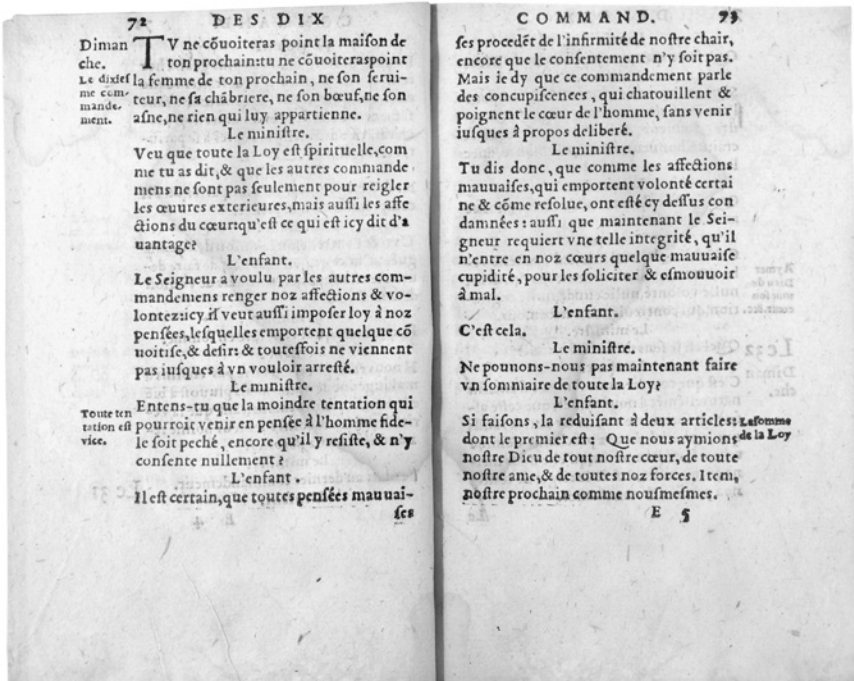 72 DES DIX
Diman
che.
Le dixies
me com-
mande-
ment.
TV ne cõuoiteras point la maison de
ton prochain:tu ne cõuoiteras point
la femme de ton prochain, ne son serui-
teur, ne sa chãbriere, ne son bœuf, ne son
asne, ne rien qui luy appartienne.
Le ministre.
Veu que toute la Loy est spirituelle, com
me tu as dit, & que les autres commande
mens ne sont pas seulement pour reigler
les œuures exterieures, mais aussi les affe
ctions du cœur:qu'est ce qui est icy dit d'a
uantage?
L'enfant.
Le Seigneur a voulu par les autres com-
mandemens renger noz affections & vo-
lontez:icy il veut aussi imposer loy à noz
pensées, lesquelles emportent quelque cõ
uoitise, & desir: & toutesfois ne viennent
pas iusques à vn vouloir arresté.
Le ministre.
Toute ten
tation est
vice.
Entens-tu que la moindre tentation qui
pourroit venir en pensée à l'homme fide-
le soit peché, encore qu'il y resiste, & n'y
consente nullement?
L'enfant.
Il est certain, que toutes pensées mauuai-
ses
COMMAND. 73
ses procedẽt de l'infirmité de nostre chair,
encore que le consentement n'y soit pas.
Mais ie dy que ce commandement parle
des concupiscences, qui chatouillent &
poignent le cœur de l'homme, sans venir
iusques à propos deliberé.
Le ministre.
Tu dis donc, que comme les affections
mauuaises, qui emportent volonté certai
ne & cõme resolue, ont esté cy dessus con
damnées: aussi que maintenant le Sei-
gneur requiert vne telle integrité, qu'il
n'entre en noz cœurs quelque mauuaise
cupidité, pour les soliciter & esmouuoir
à mal.
L'enfant.
C'est cela.
Le ministre.
Ne pouuons-nous pas maintenant faire
vn sommaire de toute la Loy?
L'enfant.
Si faisons, la reduisant à deux articles:
dont le premier est: Que nous aymions
nostre Dieu de tout nostre cœur, de toute
nostre ame, & de toutes noz forces. Item,
nostre prochain comme nousmesmes.
La somme
de la Loy
E 5